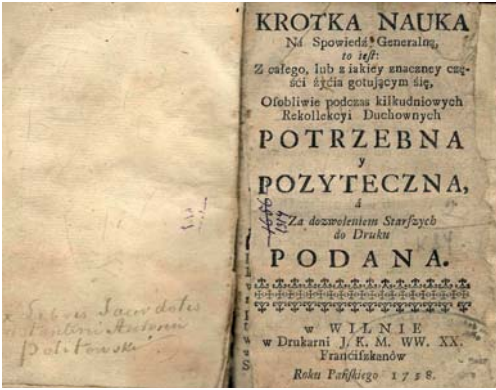 KROTKA NAUKA
Ná Spowiedź Generalną,
to ieſt:
Z całego, lub z iakiey znaczney czę-
ści życia gotuiącym śię,
Oſobliwie podczas kilkudniowych
Rekollekcyi Duchownych
POTRZEBNA
y
POZYTECZNA,
á
Za dozwoleniem Starſzych
do Druku
PODANA.
w WILNIE
w Drukarni J. K. M. WW. XX.
Franćiſzkanów
Roku Pańſkiego 1758.
Sacerdotis
Antoni
Politowski